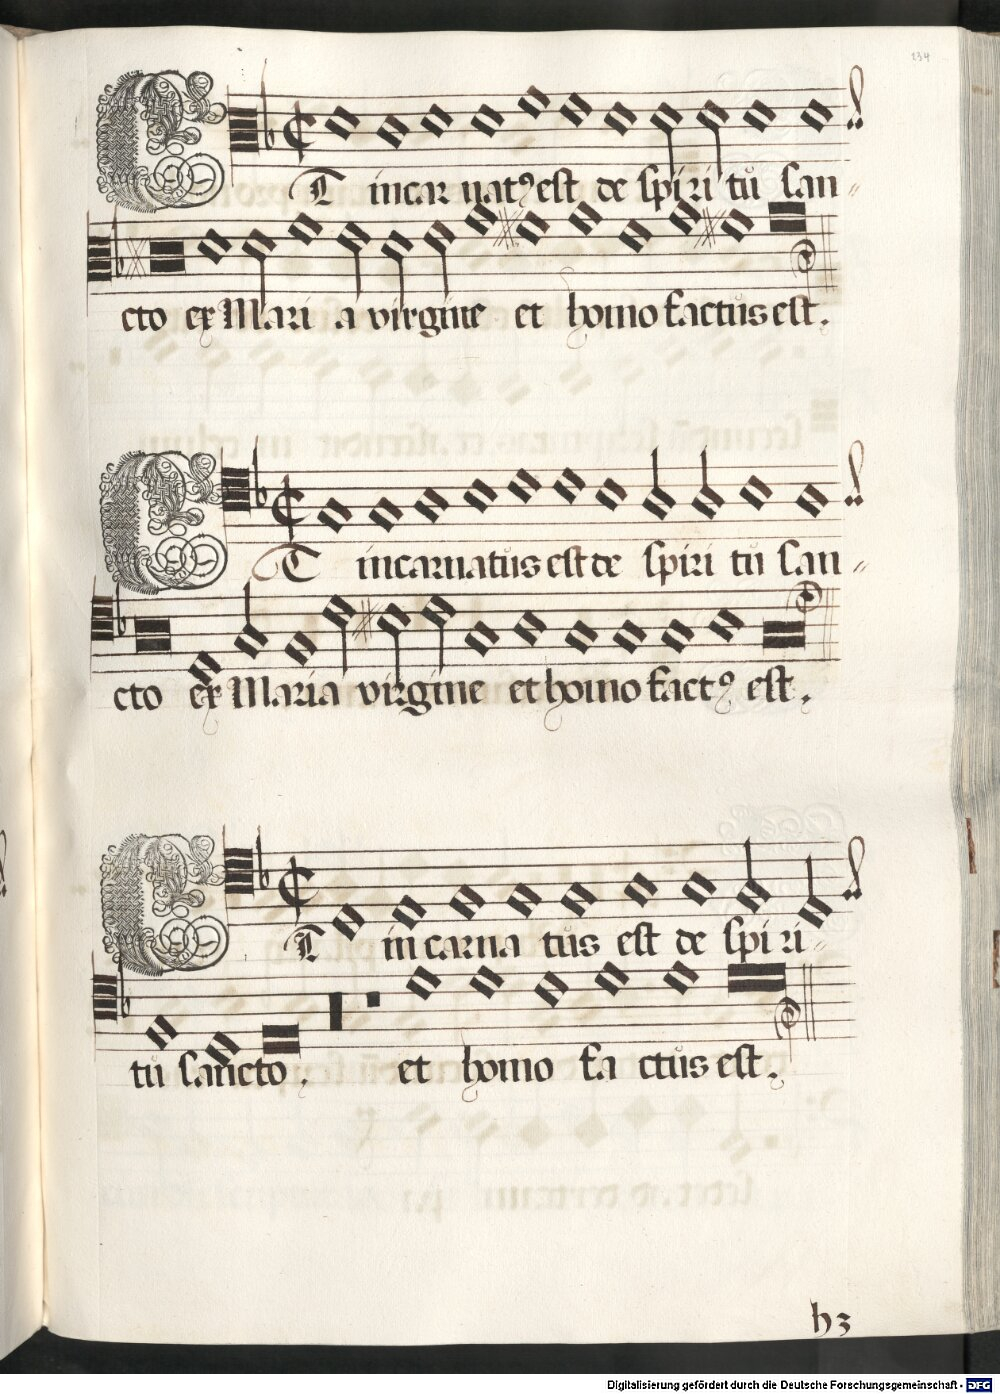 134
Et incarnatꝰ est de spiri tū san⸗
cto ex Mari a virgine et homo factus est.
Et incarnatus est de spiri tū san⸗
cto ex Maria virgine et homo factꝰ est.
Et in carna tus est de spi ri⸗
tū sancto. et homo fa ctus est.
h3
Digitalisierung gefördert durch die Deutsche Forschungsgemeinschaft - DFG